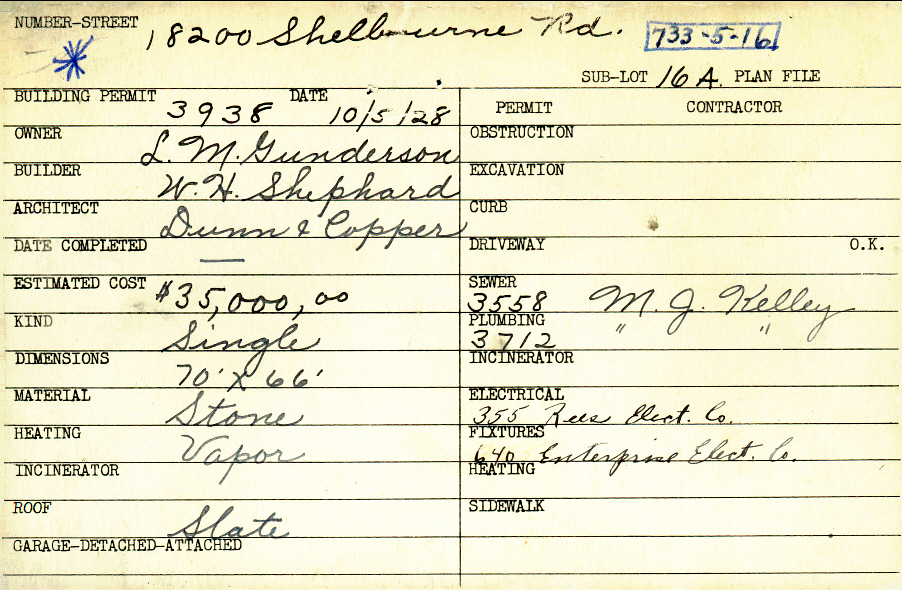 NUMBER-STREET 18200 Shelbourne Rd. 733-5-16
SUB-LOT 16 A. PLAN FILE
BUILDING PERMIT 3938 DATE 10/5/28
OWNER L. M. Gunderson
BUILDER W. H. Shephard
ARCHITECT Dunn & Copper
DATE COMPLETED —
ESTIMATED COST $35,000,00
KIND Single
DIMENSIONS 70' X 66'
MATERIAL Stone
HEATING Vapor
INCINERATOR
ROOF Slate
GARAGE-DETACHED-ATTACHED
PERMIT CONTRACTOR
OBSTRUCTION
EXCAVATION
CURB
DRIVEWAY O.K.
SEWER
3558 M. J. Kelley
PLUMBING
3712 " "
INCINERATOR
ELECTRICAL
355 Rees Elect. Co.
FIXTURES
640 Enterprise Elect. Co.
HEATING
SIDEWALK